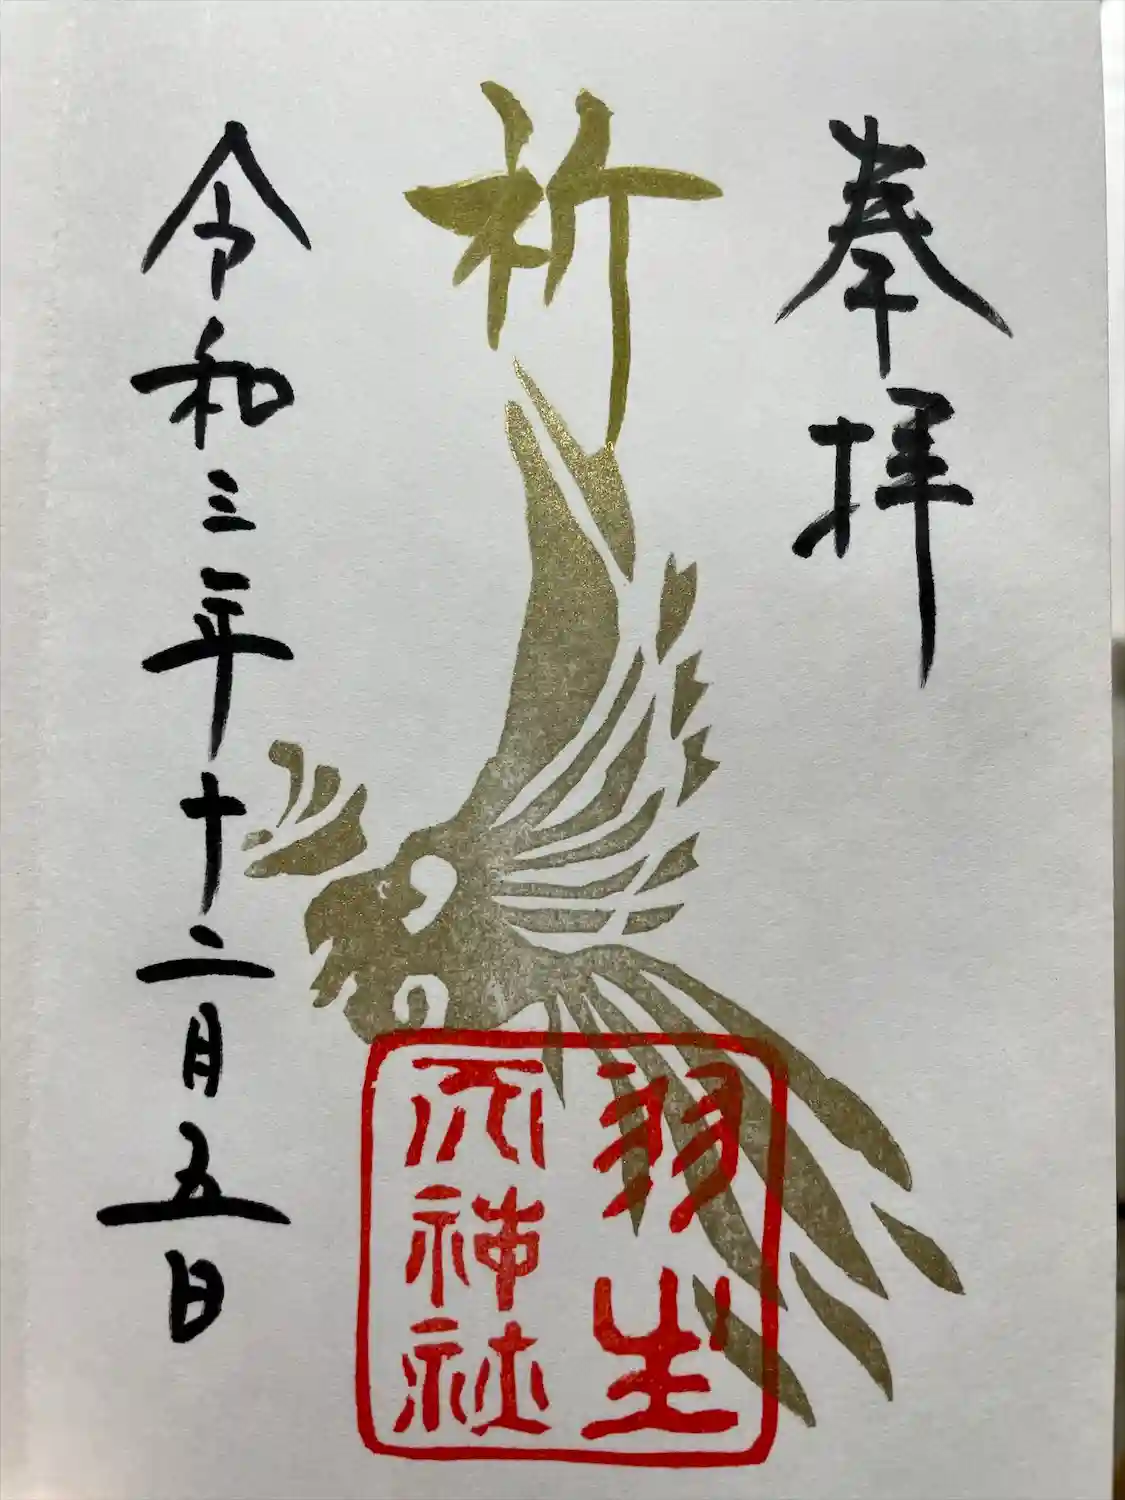 奉拝
祈
羽生
天神社
令和三年十二月五日